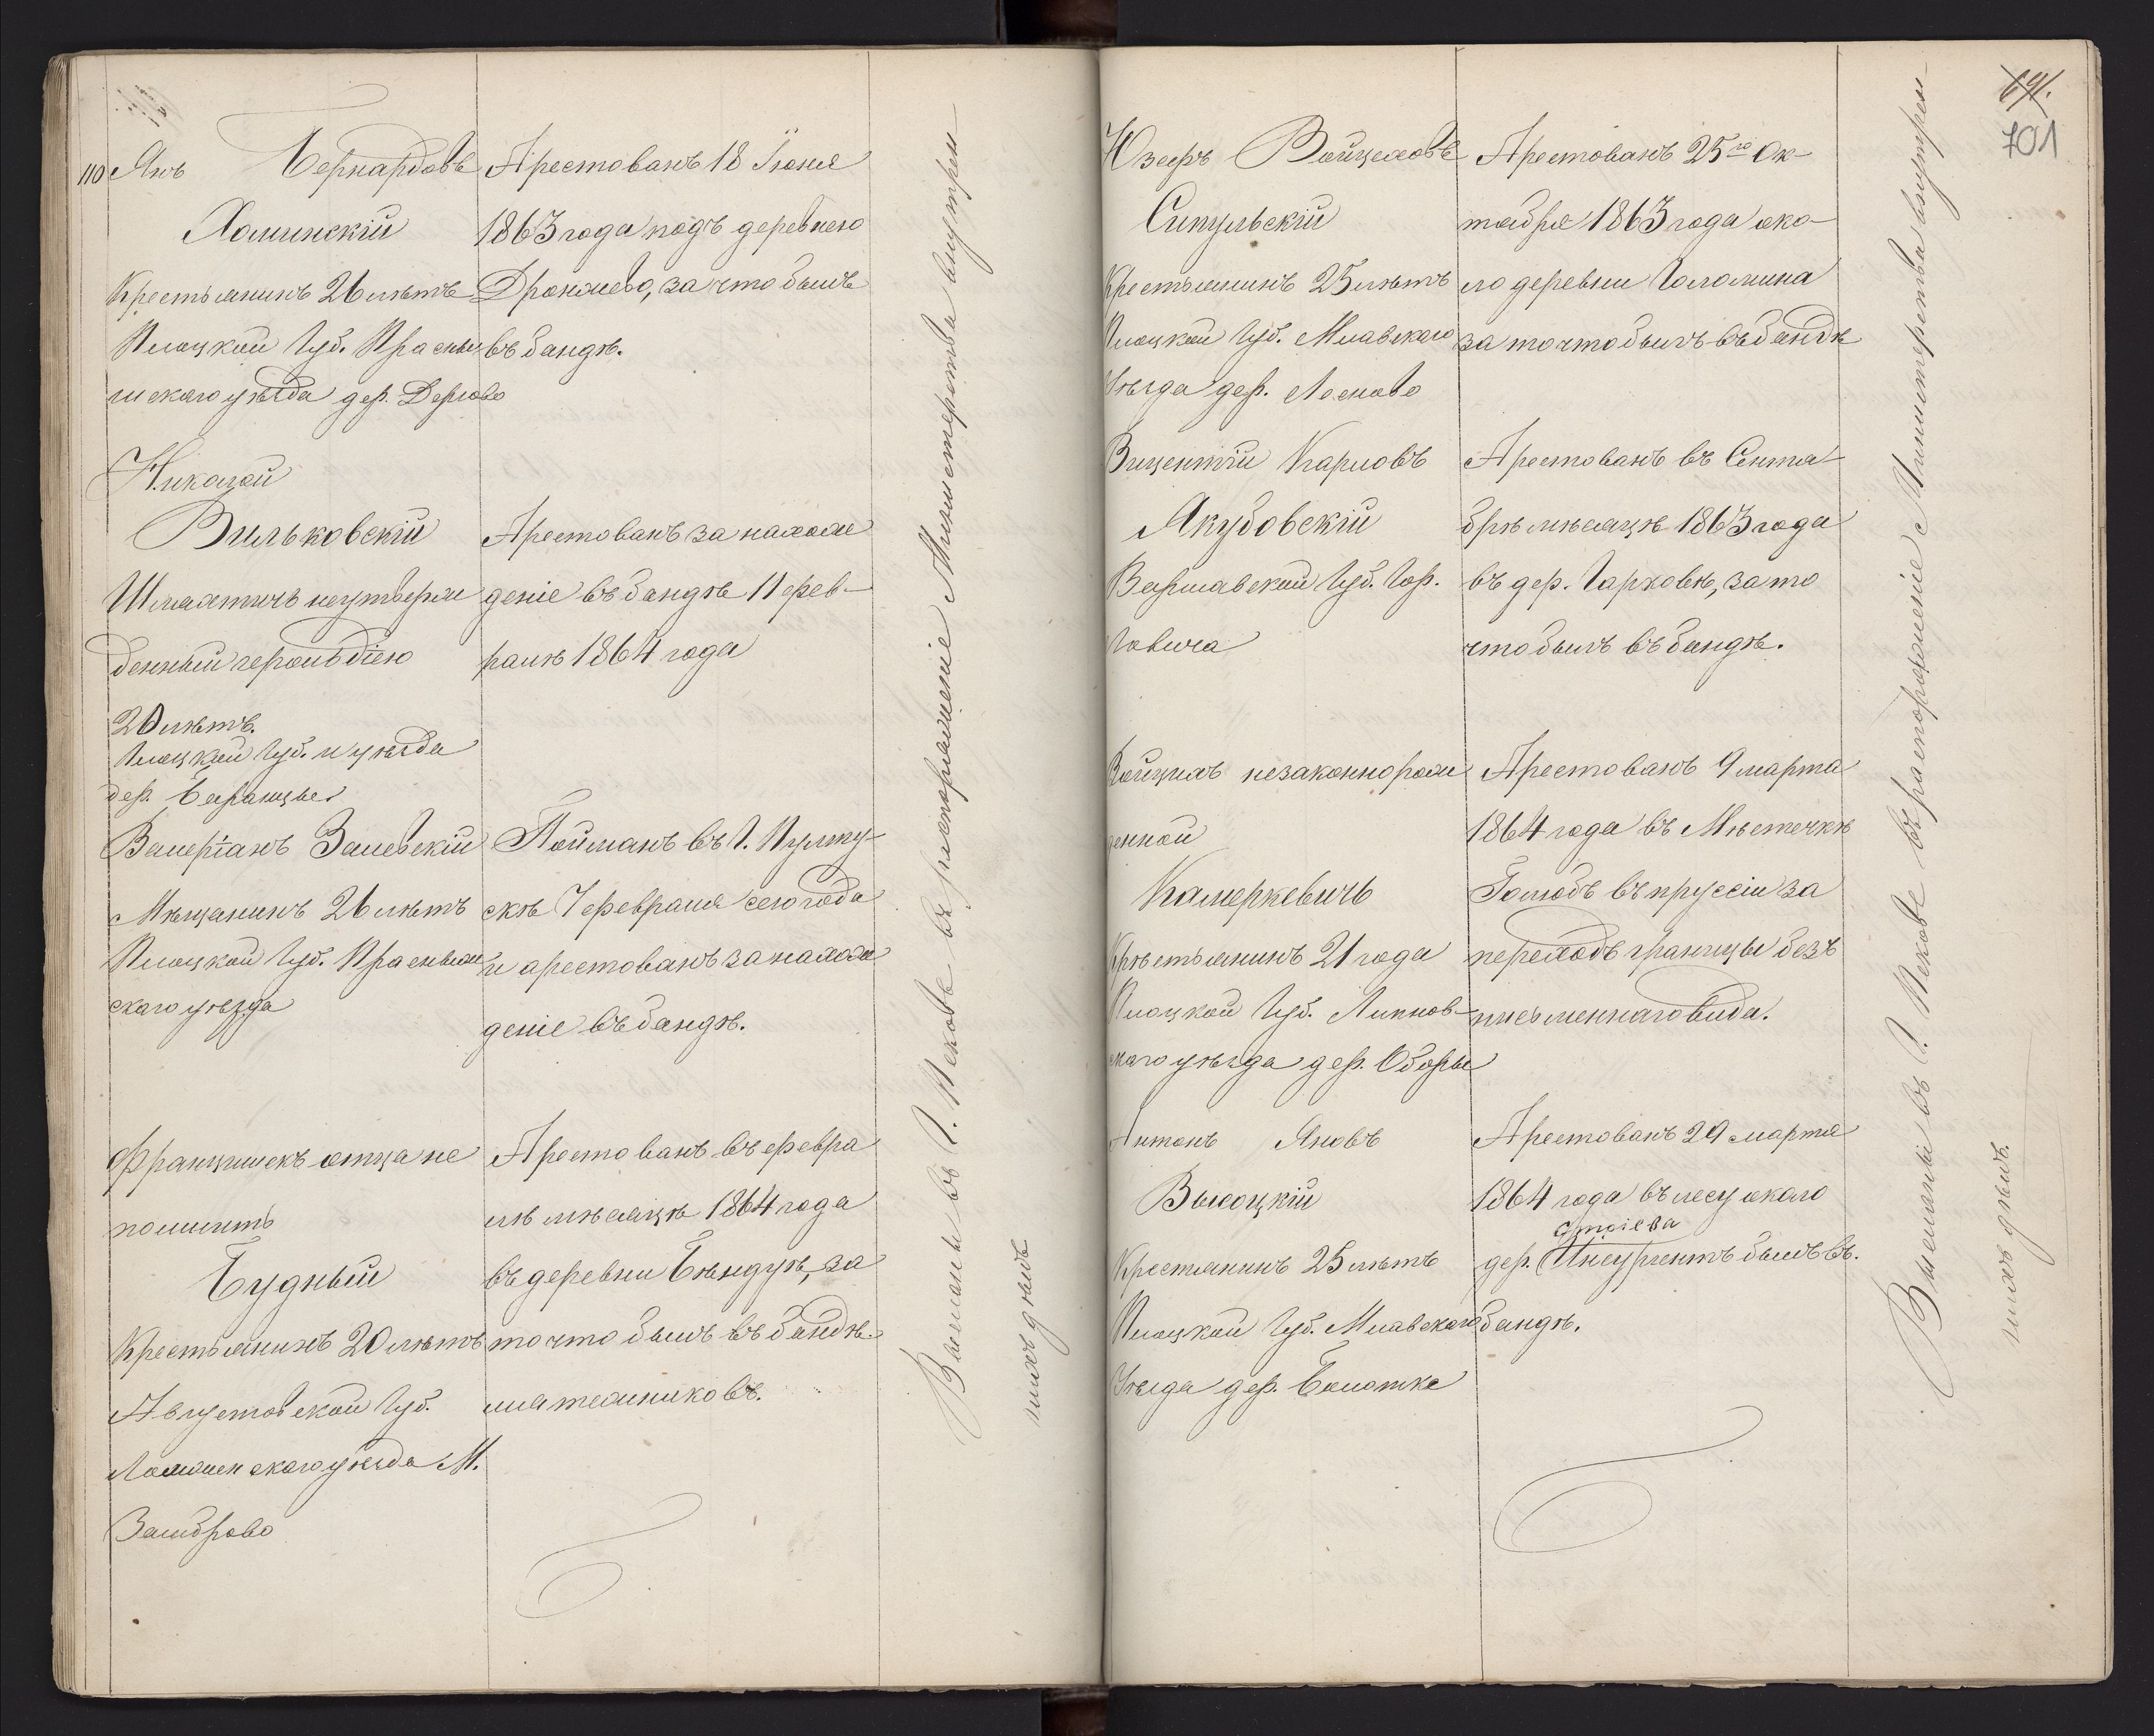 110 Янъ Бернардовъ
Хоминскій
Крестьянинъ 26 лѣтъ
Плоцкой Губ. Прасны
шскаго уѣзда дер. Дергово
Арестованъ 18 Іюня
1863 года подъ деревнею
Дронжево, за что былъ
въ бандѣ.
Николай
Вильковскій
Шляхтичъ неутверж
денный герольдіею
20 лѣтъ.
Плоцкой Губ. и уѣзда
дер. Баранцы
Арестованъ за нахож
деніе въ бандѣ 11 фев-
ралѣ 1864 года
Валеріанъ Залевскій
Мѣщанинъ 26 лѣтъ
Плоцкой Губ. Прасныш
скаго уѣзда
Пойманъ въ Г. Пулту-
скѣ 7 февраля сего года
и арестованъ за нахож
деніе въ бандѣ.
Францишекъ отца не
помнитъ
Будный
Крестьянинъ 20 лѣтъ
Августовской Губ.
Ломженскаго уѣзда М.
Замброво
Арестованъ въ февра
лѣ мѣсяцѣ 1864 года
въ деревни Бѣндугѣ, за
то что былъ въ бандѣ
мятежниковъ.
Высланы въ Г. Псковъ въ распоряженіе Министерства внутрен-
нихъ дѣлъ
691.
701
Юзефъ Войцеховъ
Сикульскій
Крестьянинъ 25 лѣтъ
Плоцкой Губ. Млавскаго
Уѣзда дер. Лесково
Арестованъ 25го Ок-
тября 1863 года око-
ло деревни Голомина
за то что былъ въ бандѣ
Вицентій Карловъ
Якубовскій
Варшавской Губ. Гор.
Ловича
Арестованъ въ Сентя-
брѣ мѣсяцѣ 1863 года
въ дер. Гарковѣ, за то
что былъ въ бандѣ.
Войцихъ незаконнорож
денной
Камеркевичъ
Крѣстьянинъ 21 года
Плоцкой Губ. Липнов-
скаго уѣзда дер. Оборы
Арестованъ 9 марта
1864 года въ Мѣстечкѣ
Голюбъ въ пруссіи за
переходъ границы безъ
письменнаго вида.
Антонъ Яновъ
Высоцкій
Крестянинъ 25 лѣтъ
Плоцкой Губ. Млавскаго
Уѣзда дер. Болотка
Арестованъ 29 марта
1864 года въ лесу около
дер. Инсургентъ былъ въ
бандѣ.
Высланы въ Г. Псковъ въ распоряженіе Министерства внутрен-
нихъ дѣлъ.